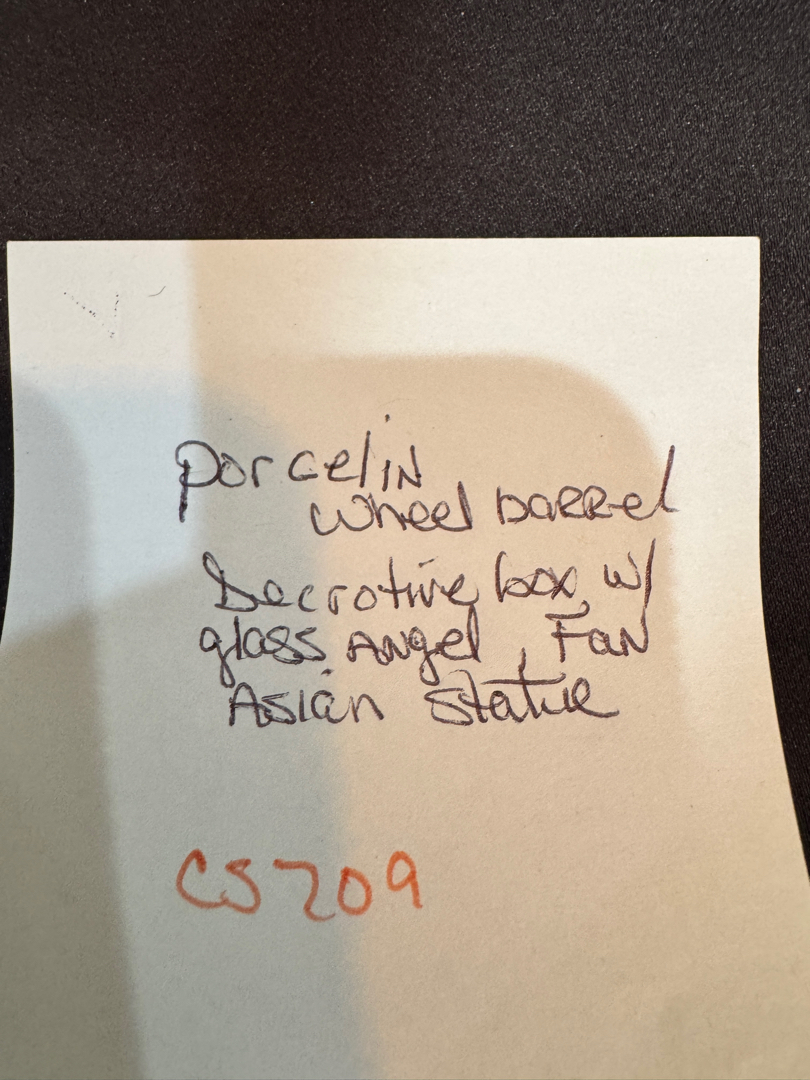 porcelin
wheel barrel
Decrotive box w/
glass Angel, Fan
Asian statue
CS209